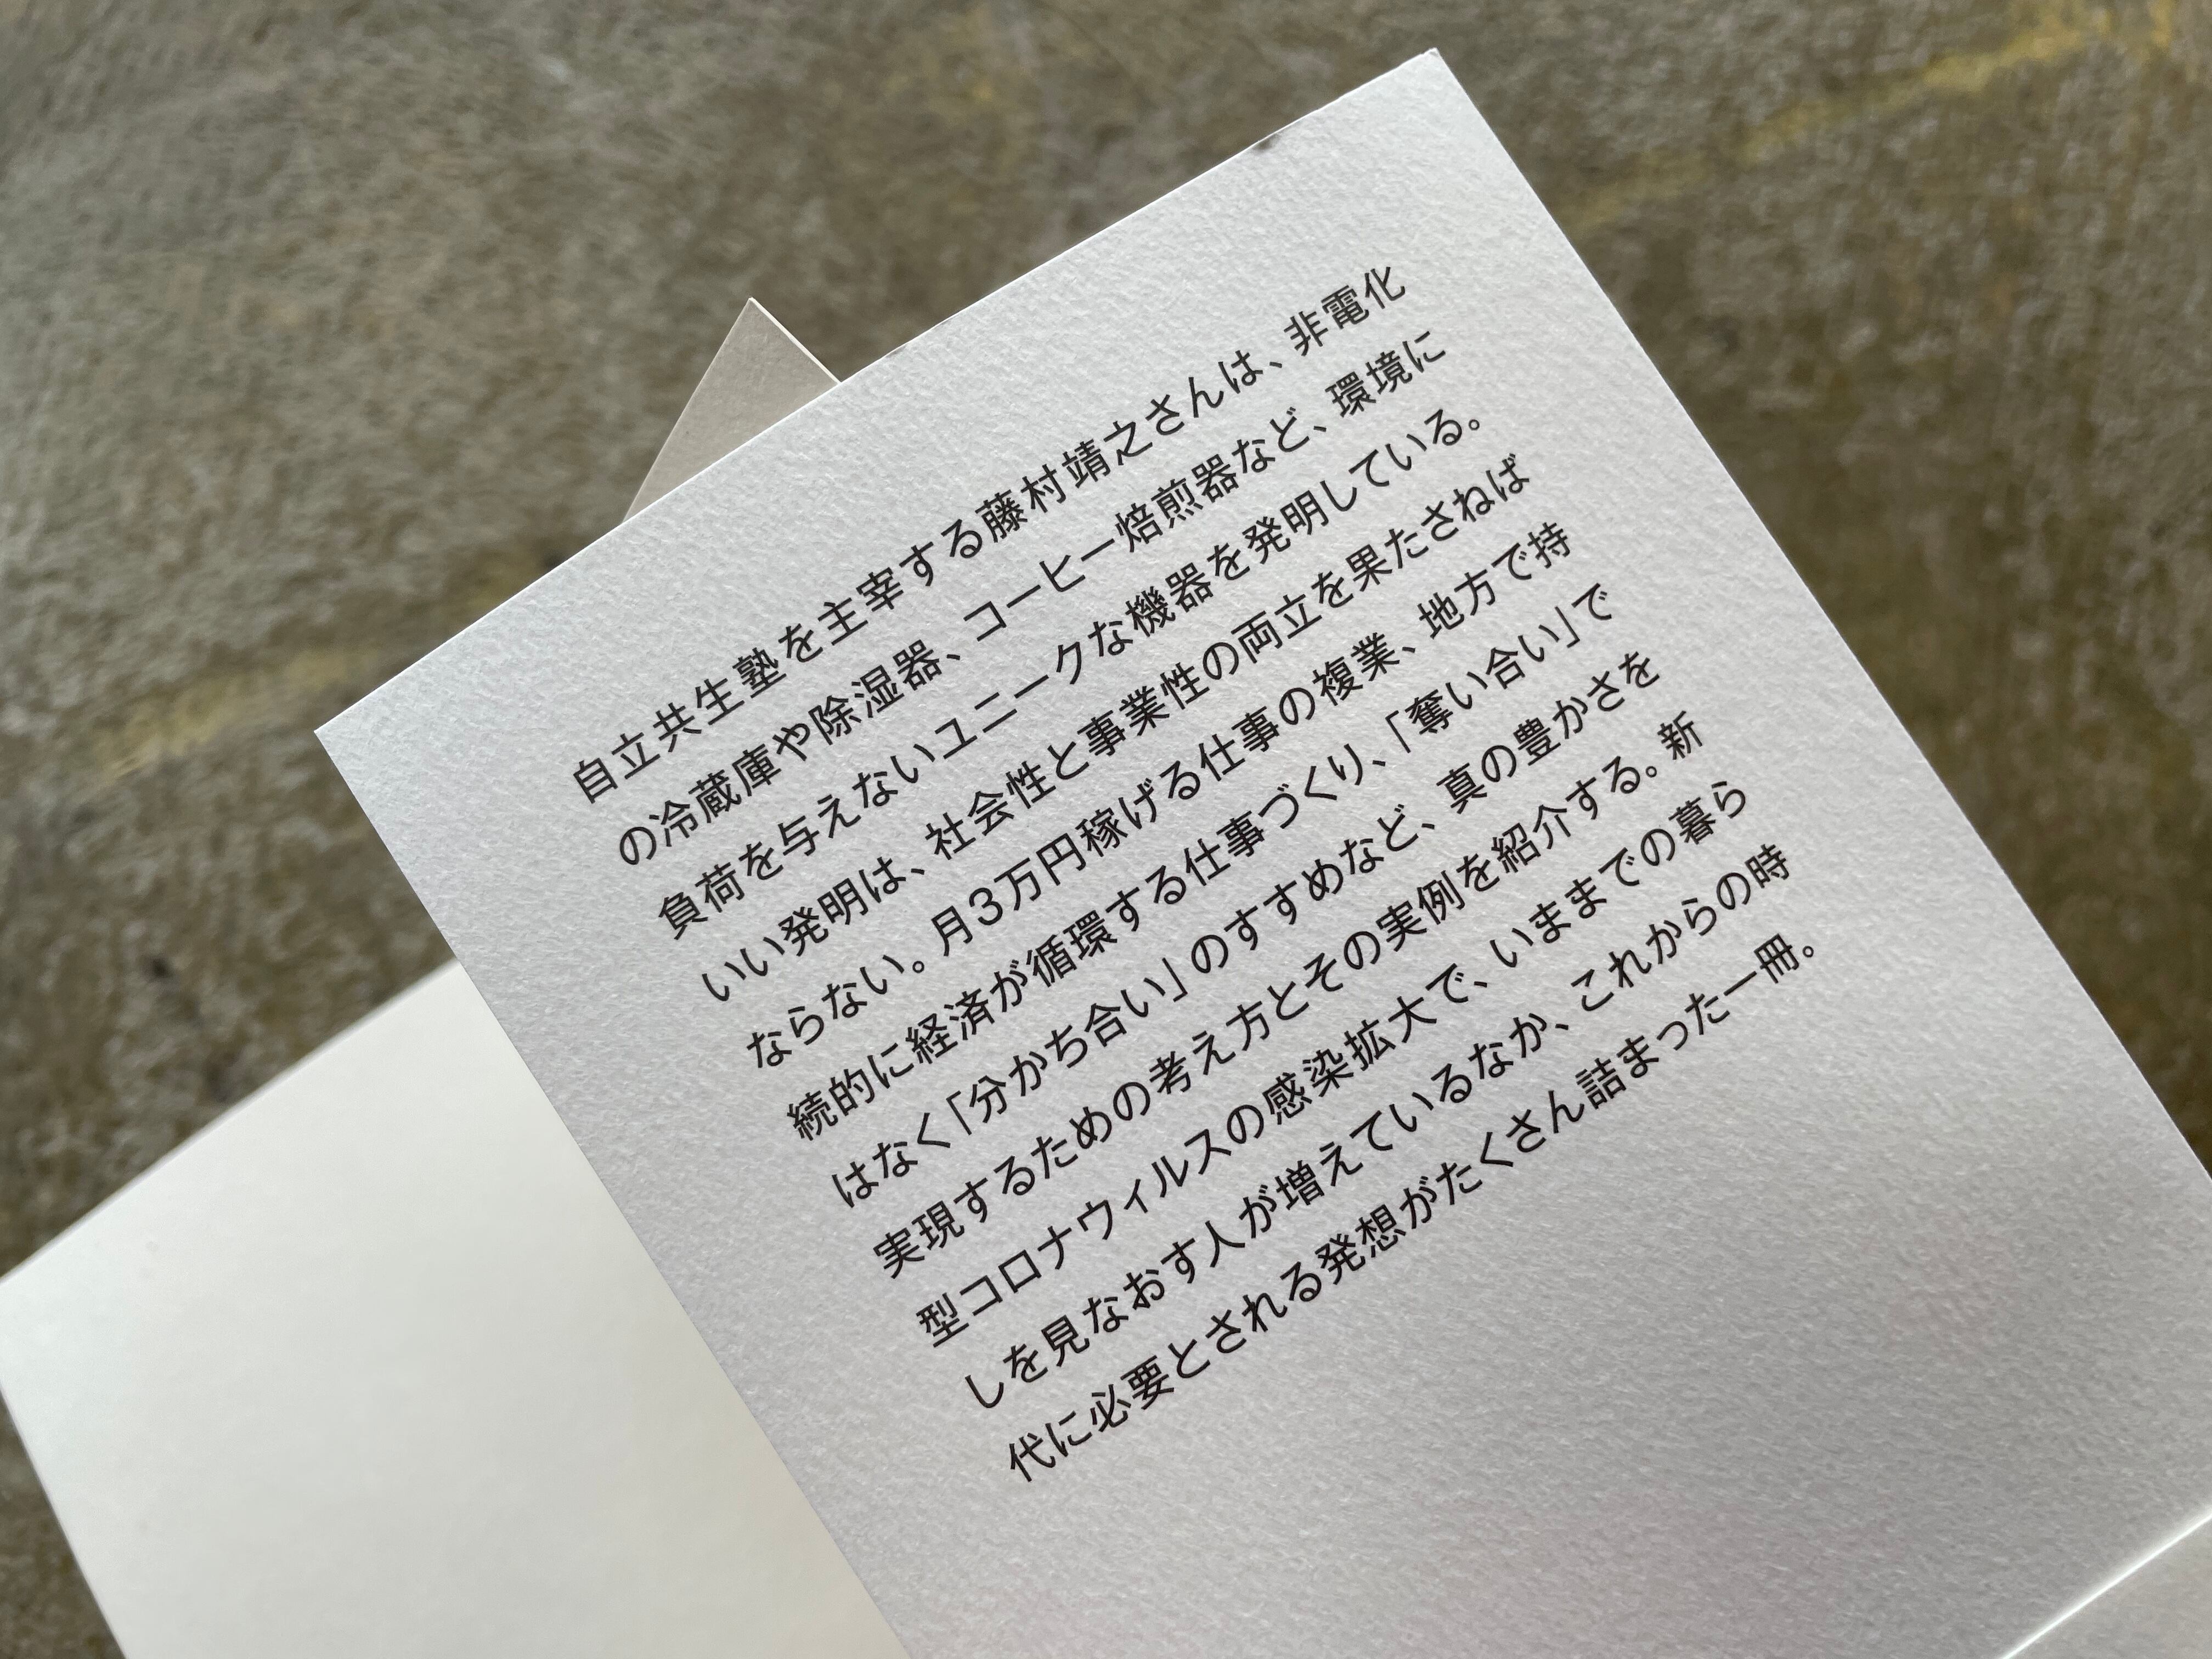 自立共生塾を主宰する藤村靖之さんは、非電化
の冷蔵庫や除湿器、コーヒー焙煎器など、環境に
負荷を与えないユニークな機器を発明している。
いい発明は、社会性と事業性の両立を果たさねば
ならない。月3万円稼げる仕事の複業、地方で持
続的に経済が循環する仕事づくり、「奪い合い」で
はなく「分かち合い」のすすめなど、真の豊かさを
実現するための考え方とその実例を紹介する。新
型コロナウィルスの感染拡大で、いままでの暮ら
しを見なおす人が増えているなか、これからの時
代に必要とされる発想がたくさん詰まった一冊。